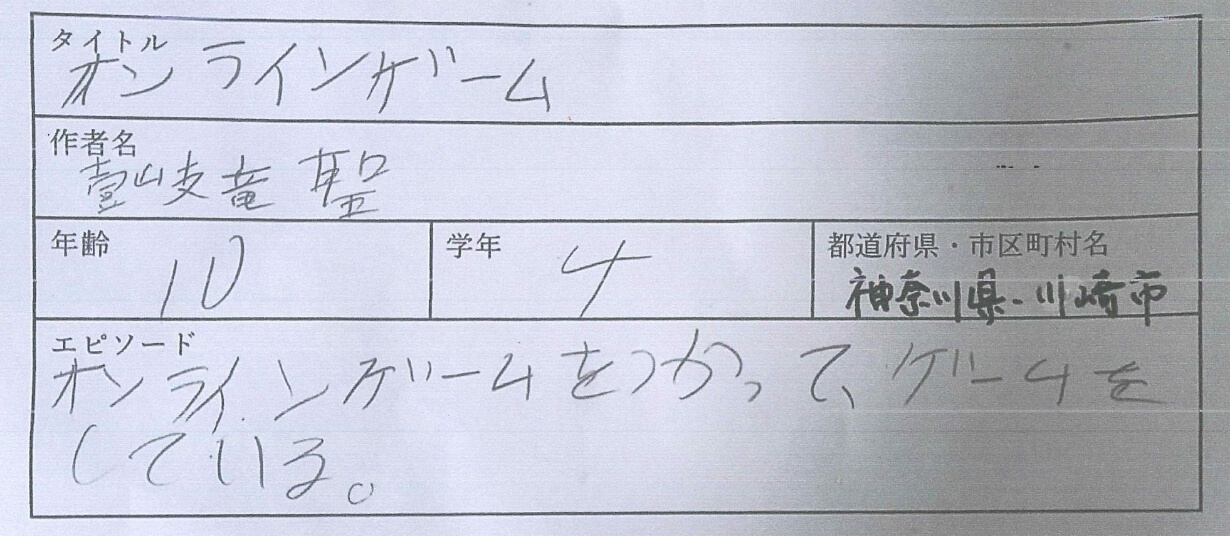 タイトル
オンラインゲーム
作者名
壹岐竜聖
年齢
10
学年
4
都道府県・市区町村名
神奈川県・川崎市
エピソード
オンラインゲームをつかって、ゲームを
している。